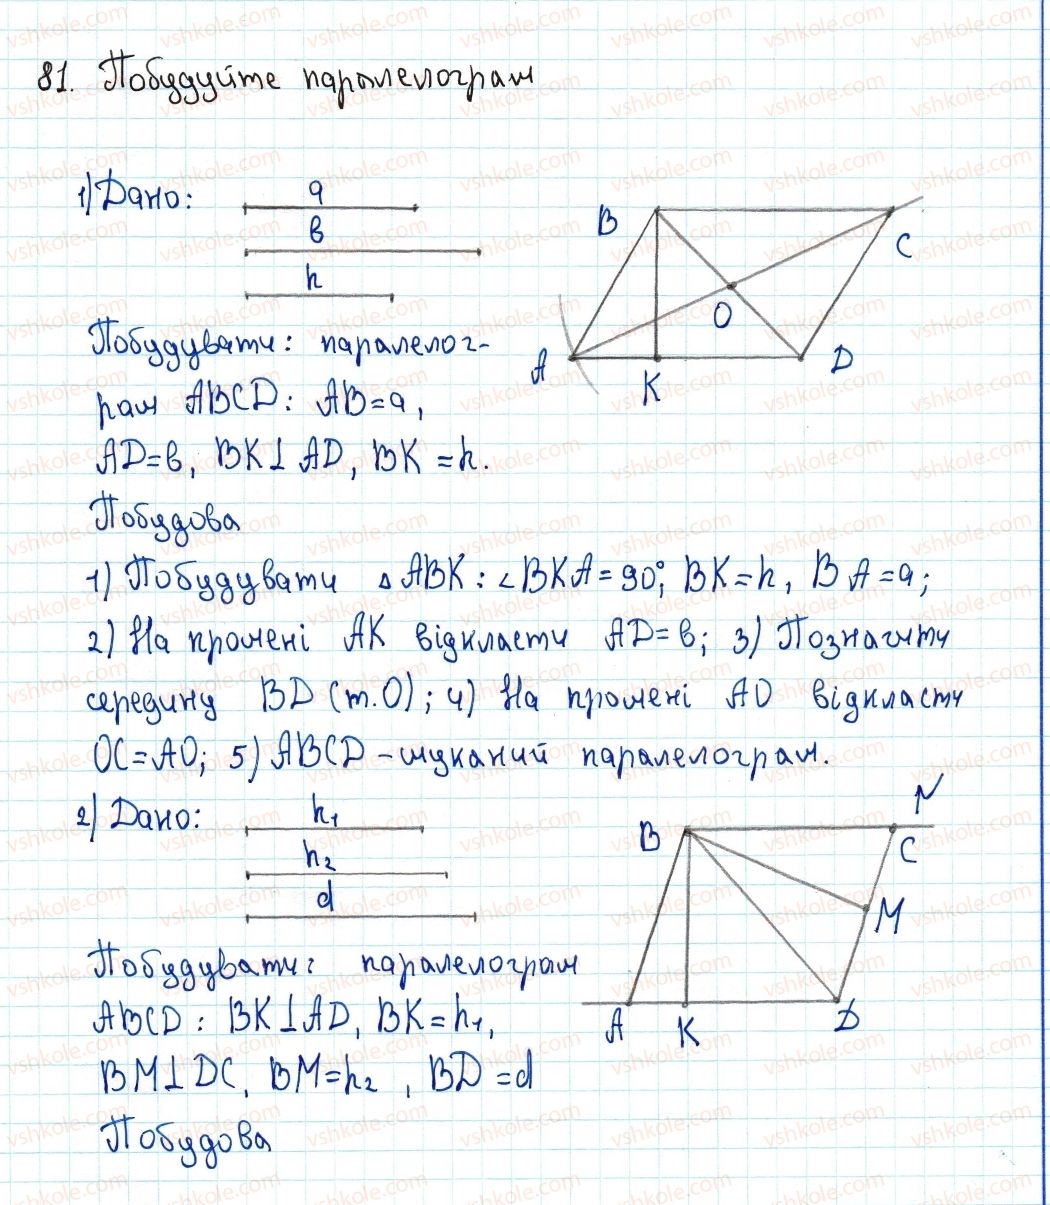 81. Побудуйте паралелограм
1) Дано:
a
b
h
B
C
O
A
K
D
Побудувати: паралелог-
рам ABCD: AB=a,
AD=b, BK⊥AD, BK=h.
Побудова
1) Побудувати ΔABK: ∠BKA=90°, BK=h, BA=a;
2) На промені AK відкласти AD=b; 3) Позначити
середину BD (т.O); 4) На промені AO відкласти
OC=AO; 5) ABCD – шуканий паралелограм.
2) Дано:
h₁
h₂
d
B
N
C
M
A
K
D
Побудувати: паралелограм
ABCD: BK⊥AD, BK=h₁,
BM⊥DC, BM=h₂, BD=d
Побудова
vshkole.com